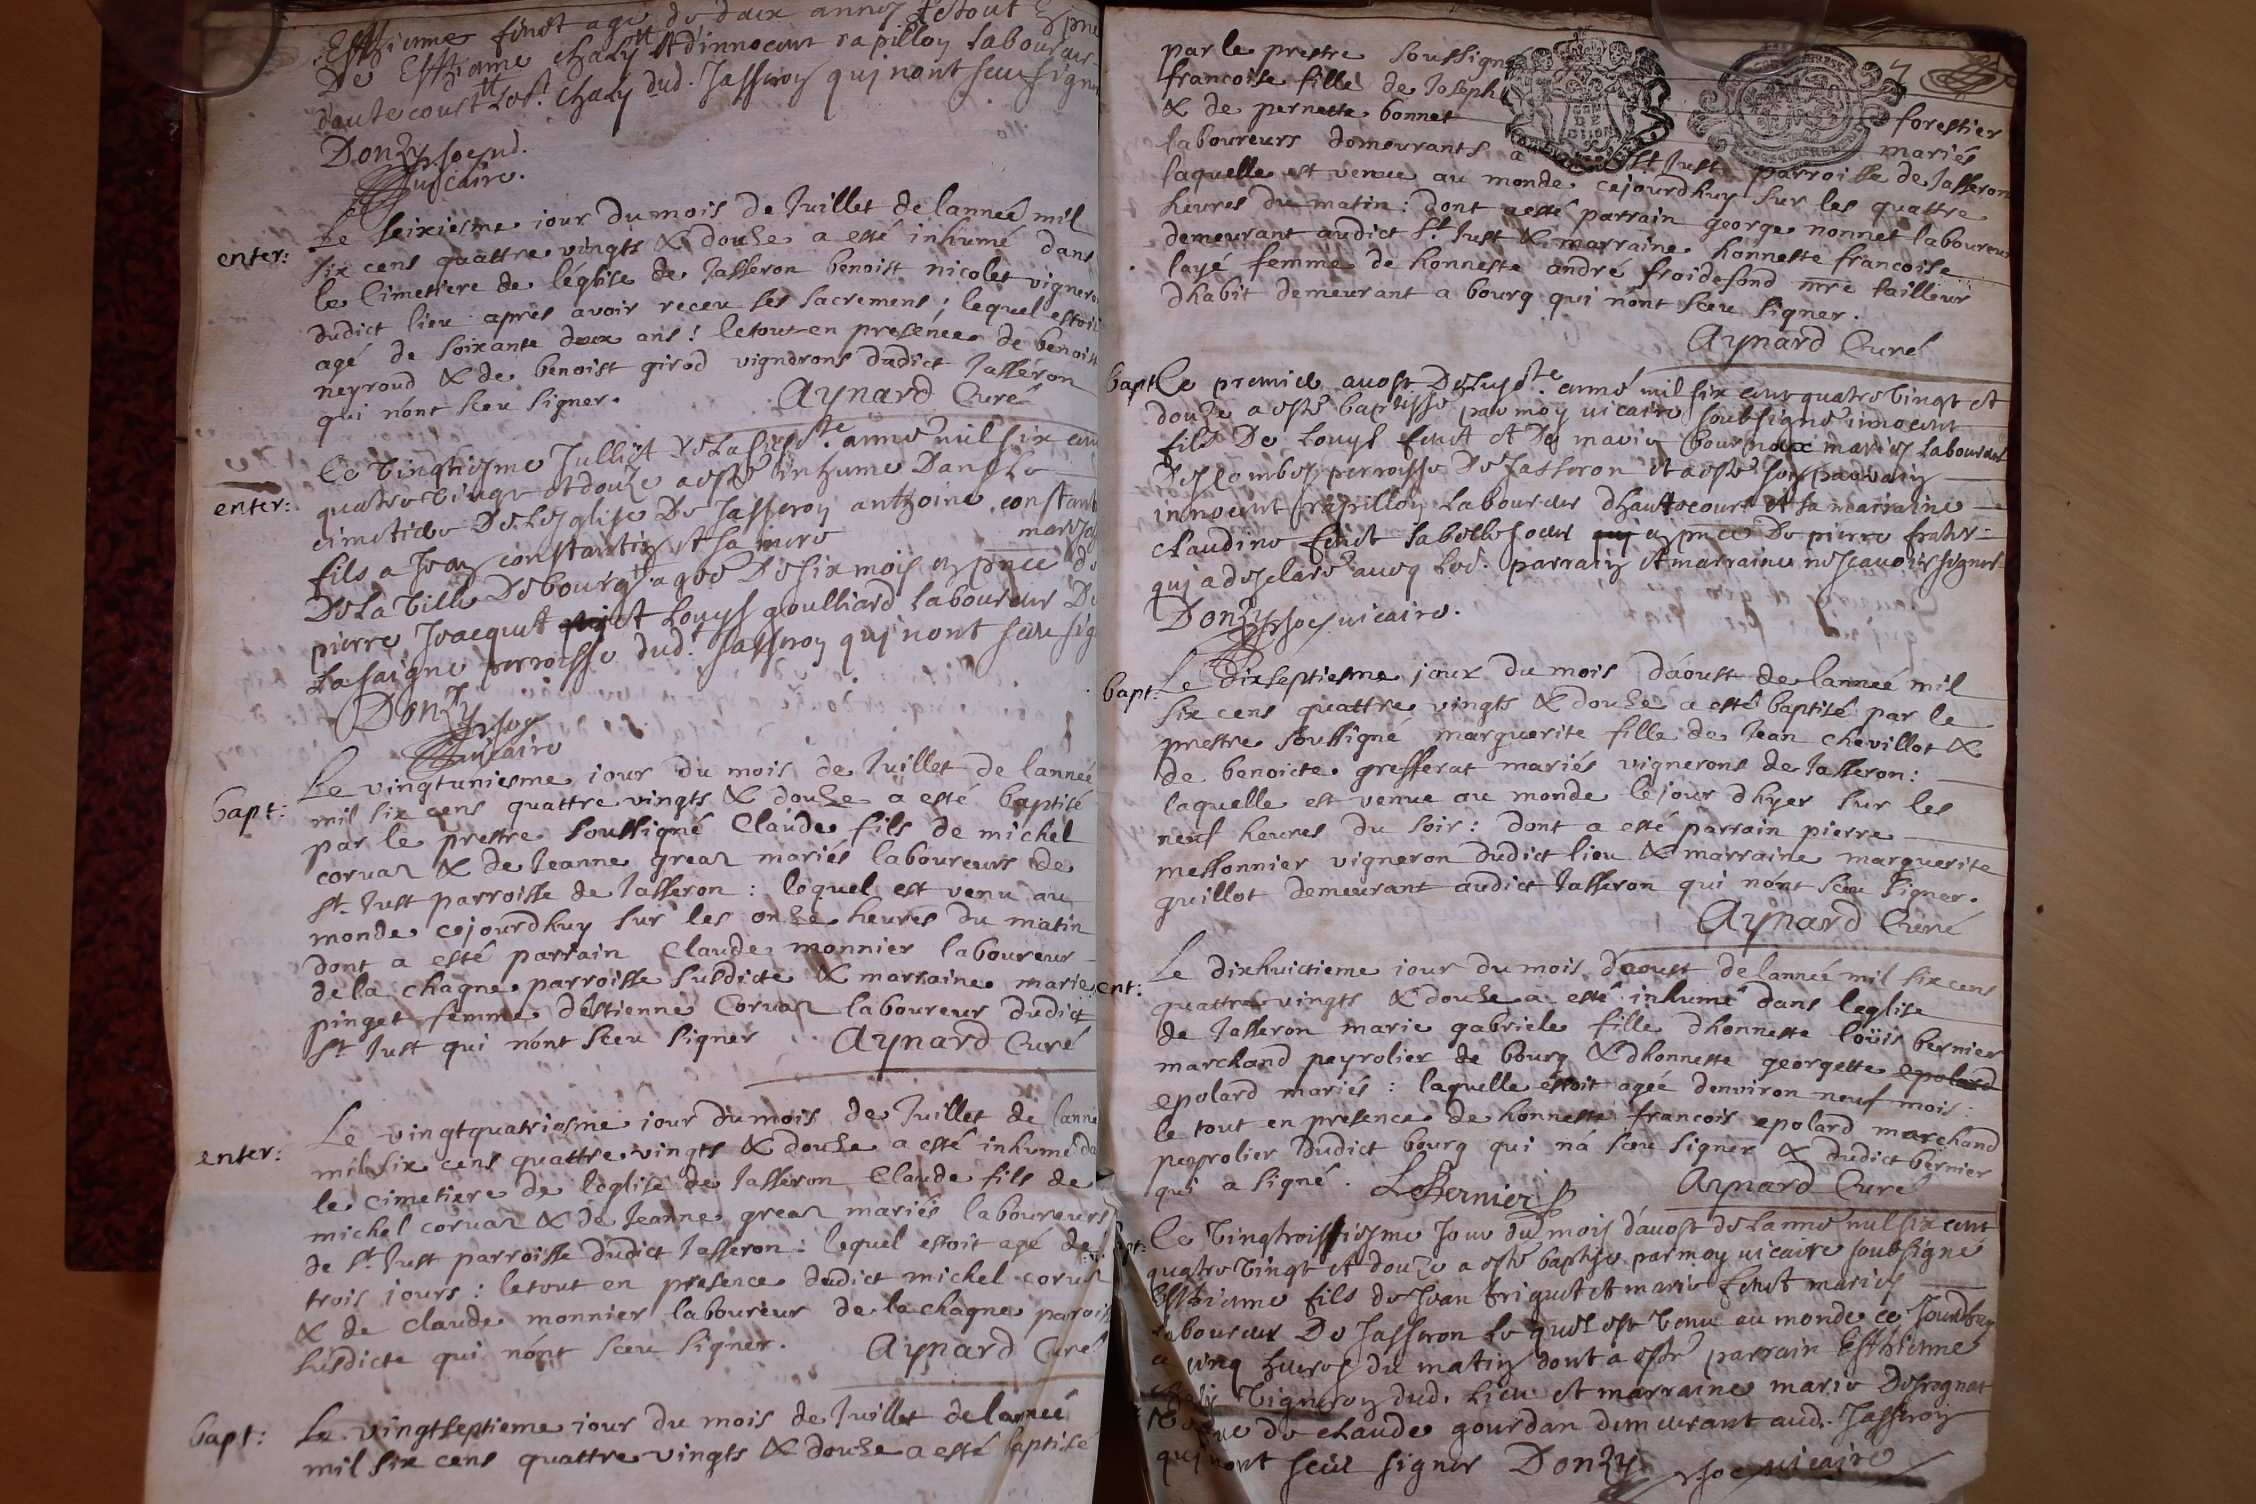 Estienne fenet agé de deux annés le tout en pnce
De Estienne chaly et d'innocent rapillon Laboureur
dautecourt led. chaly dud. Jasseron qui nont sceu signer
Donzy
vicaire.
enter:
Le seixiesme jour du mois de Juillet de lanneé mil
six cens quattre vingts & douze a esté inhumé dans
le Cimetiere de l'églisse de Jasseron benoist nicolet vigneron
dudict lieu apres avoir receu ses sacremens; lequel estoit
agé de soixante deux ans: le tout en presence de benoist
neyroud & de benoist girod vignerons dudict Jasseron
qui n'ont sceu signer.
Aynard Curé
enter:
Le vingtiesme Julliet de la susdte anné mil six cent
quatre vingt et douze a esté inhumé Dans Le
cimetiere De Lesglise De Jasseron anthoine constantin
fils a Jean constantin et sa mere
De La Ville De bourg agé De six mois en pnce de
pierre Joacquet et Louys goulliard Laboureur De
La saigne perroisse dud. Jasseron qui nont sceu sig
Donzy
vicaire
bapt:
Le vingtuniesme iour du mois de Juillet de lanneé
mil six cens quattre vingts & douze a esté baptisé
par le prestre soussigné Claude fils de michel
coruaz & de Jeanne greaz mariés laboureurs de
st. Just parroisse de Jasseron: lequel est venu au
monde cejourdhuy sur les onze heures du matin
dont a esté parrain Claude monnier laboureur
de la chagne parroisse susdicte & marraine marie
pinget femme d'estienne Coruaz laboureur dudict
st. Just qui n'ont sceu signer Aynard Curé
enter:
Le vingtquatriesme iour du mois de Juillet de lanneé
mil six cens quattre vingts & douze a esté inhumé da
le cimetiere de l'eglise de Jasseron Claude fils de
michel coruaz & de Jeanne greaz mariés laboureurs
de st. Just parroisse dudict Jasseron: lequel estoit agé de
trois iours: le tout en presence dudict michel coruaz
& de claude monnier laboureur de la chagne parois
susdicte qui n'ont sceu signer. Aynard Curé
bapt:
Le vingtseptieme iour du mois de Juillet de lanneé
mil six cens quattre vingts & douze a esté baptisé
par le prestre soussigné
francoise fille de Joseph forestier
& de pernette bonnet mariés
laboureurs demeurants a st. Just parroisse de Jasseron
laquelle est venue au monde cejourdhuy sur les quattre
heures du matin: dont a esté parrain george nonnet laboureur
demeurant audict st. Just & marraine honneste francoise
layé femme de honneste andré froidefond mre tailleur
dhabit demeurant a bourg qui n'ont sceu signer.
Aynard Curé
bapt
Le premier auost De susdte anné mil six cent quatre vingt et
douze a esté baptissé par moy vicaire soubsigné innocent
fils De Louys fenet et De marie bournoux mariés Laboureur
Des combes perroisse De Jasseron et a esté son parrain
innocent rapillon Laboureur d'hautecourt et sa marraine
claudine fenet sa belle soeur en pnce De pierre frater
qui a desclaré auec Led. parrain et marraine ne scauoir signer
Donzy vicaire.
bapt:
Le dixseptiesme jour du mois d'aoust de lanneé mil
six cens quattre vingts & douze a esté baptisé par le
prestre soussigné marguerite fille de Jean chevillot &
de benoicte grefferat mariés vignerons de Jasseron:
laquelle est venue au monde le jour d'hyer sur les
neuf heures du soir: dont a esté parrain pierre
messonnier vigneron dudict lieu & marraine marguerite
guillot demeurant audict Jasseron qui n'ont sceu signer.
Aynard Curé
ent:
Le dixhuictieme iour du mois d'aoust de lanneé mil six cens
quattre vingts & douze a esté inhumé dans leglise
de Jasseron marie gabriele fille dhonneste loüis bernier
marchand peyrolier de bourg & dhonneste georgette epolard
epolard mariés: laquelle estoit agée denviron neuf mois:
le tout en presence de honneste francois epolard marchand
peyrolier dudict bourg qui n'a sceu signer & dudict bernier
qui a signé. L Bernier Aynard Curé
Le vingtroissiesme Jour du mois d'auost de Lanné mil six cent
quatre vingt et douze a esté baptisé par moy vicaire soubsigné
Esthienne fils de Jean triquet et marie fenet mariés
Laboureur De Jasseron Lequel est venu au monde ce Jourdhuy
a cinq heures du matin dont a esté parrain Esthienne
chaly vigneron dud. Lieu et marraine marie Desrognat
veuve de claude gourdan demeurant aud. Jasseron
qui nont sceu signer Donzy vicaire